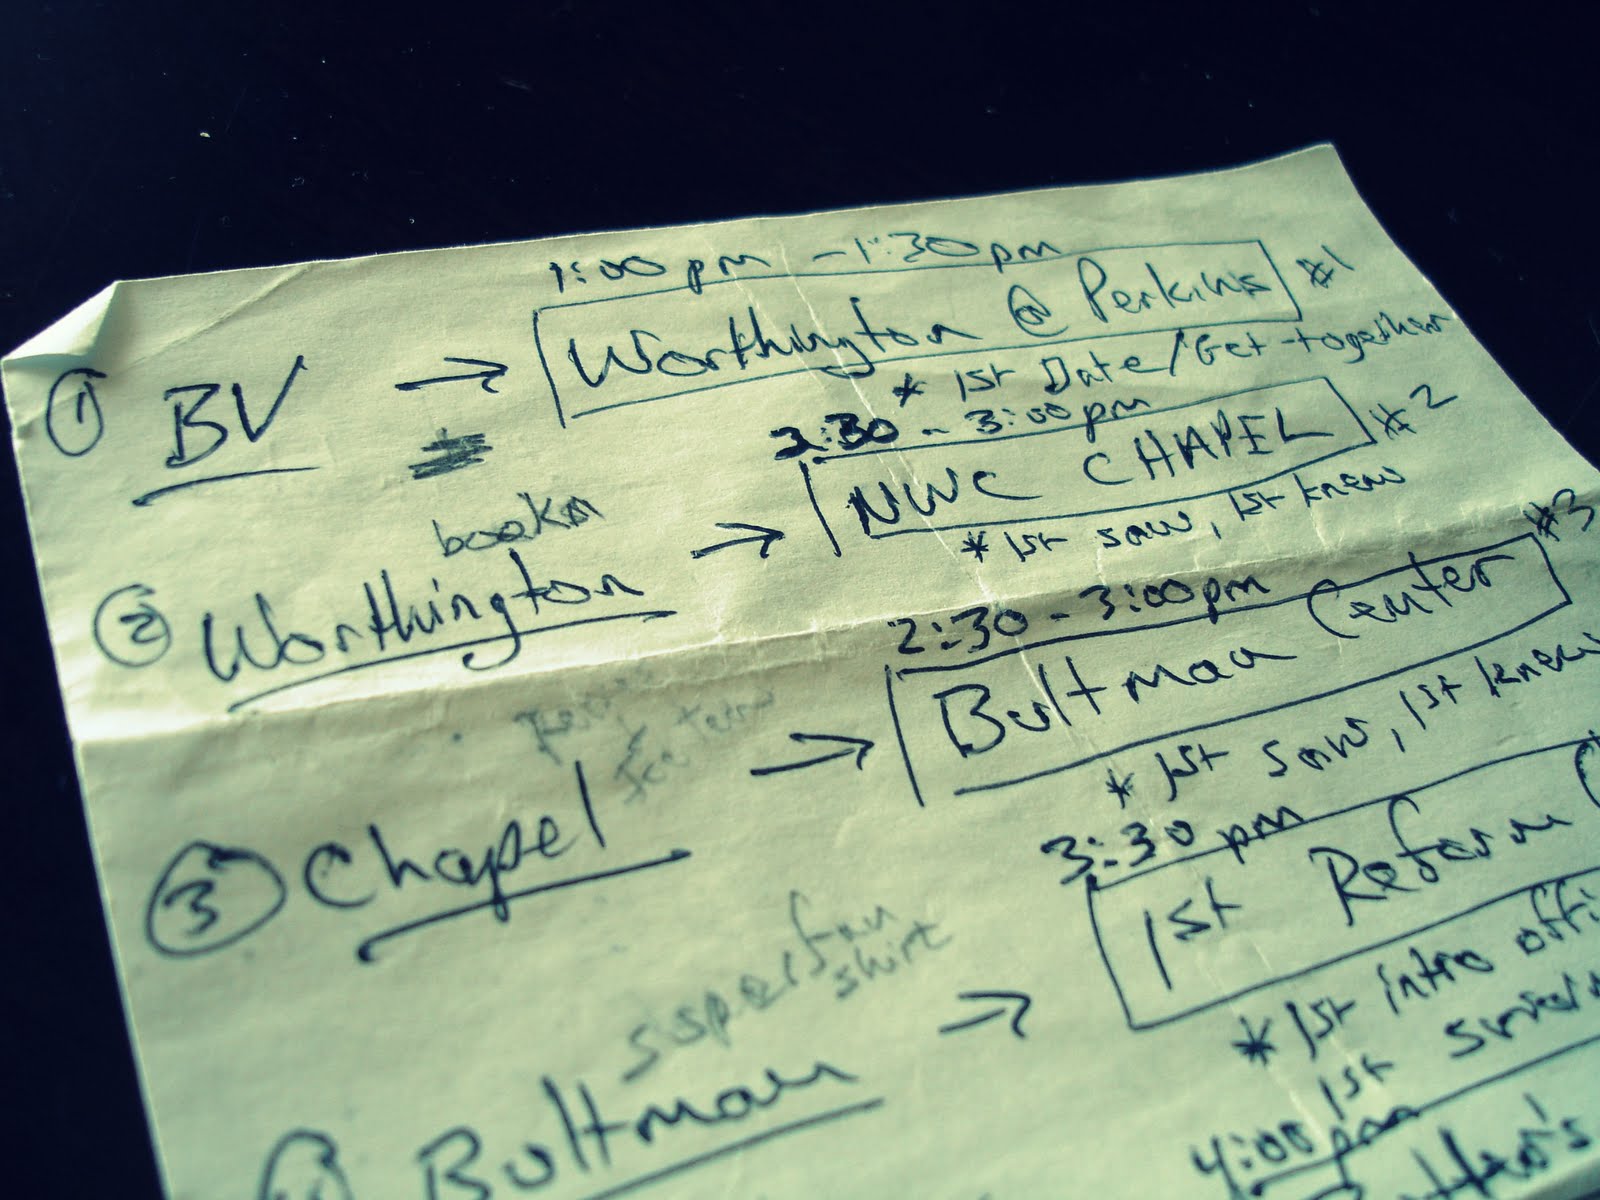 1:00 pm - 1:30 pm
① BV → Worthington @ Perkins #1
* 1st Date/Get-together
2:30 - 3:00 pm
→ NWC CHAPEL #2
* 1st saw, 1st knew
② Worthington
2:30 - 3:00 pm
→ Bultman Center #3
* 1st saw, 1st knew
③ Chapel
3:30 pm
→ 1st Reform
superfan
shirt
* 1st intro offi
1st
Bultman
4:00 pm